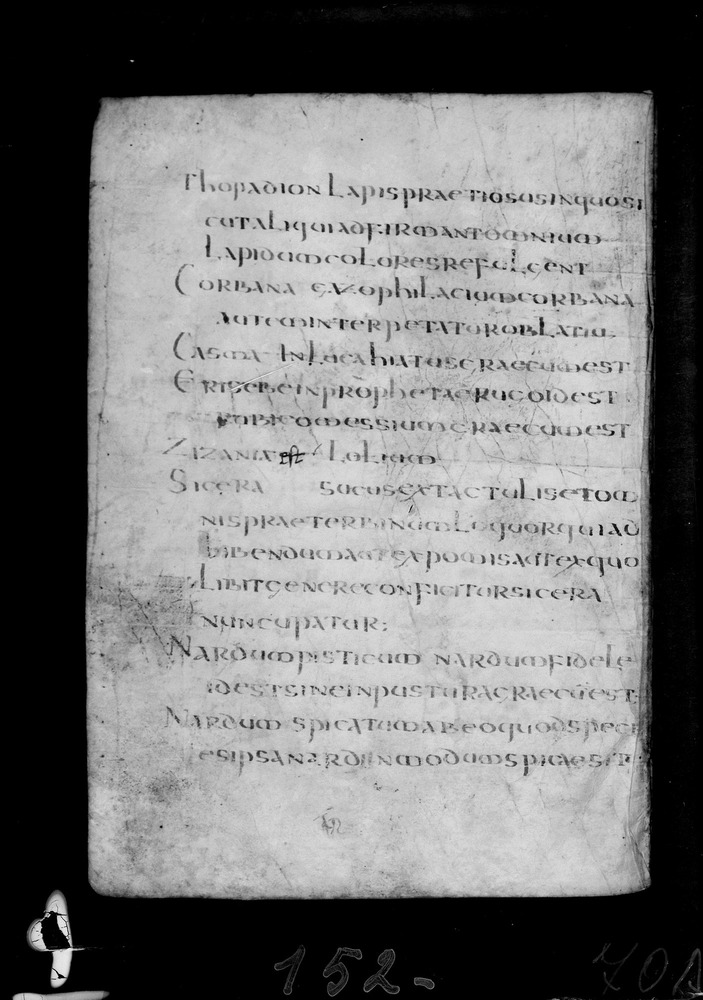 Thopadion Lapis praetiosus in quo si
cut aliqui adfirmant omnium
Lapidum colores refulgent
Corbana gazophilacium corbana
autem interpetatur oblatiu
Casma In Luca hiatus graecum est
Erisebe in prophetae rugo id est
rubigo messium graecum est
Zizania est Lolium
Sicera sucus extactulis et om
nis praeter vinum Liquor qui ad
bibendum aut ex pomis aut ex quo
Libit genere conficitur sicera
nuncupatur;
Nardum pisticum nardum fidele
id est sine inpustura graecum est
Nardum spicatum ab eo quod speci
es ipsa nardi in modum spicae sit
152-
70A